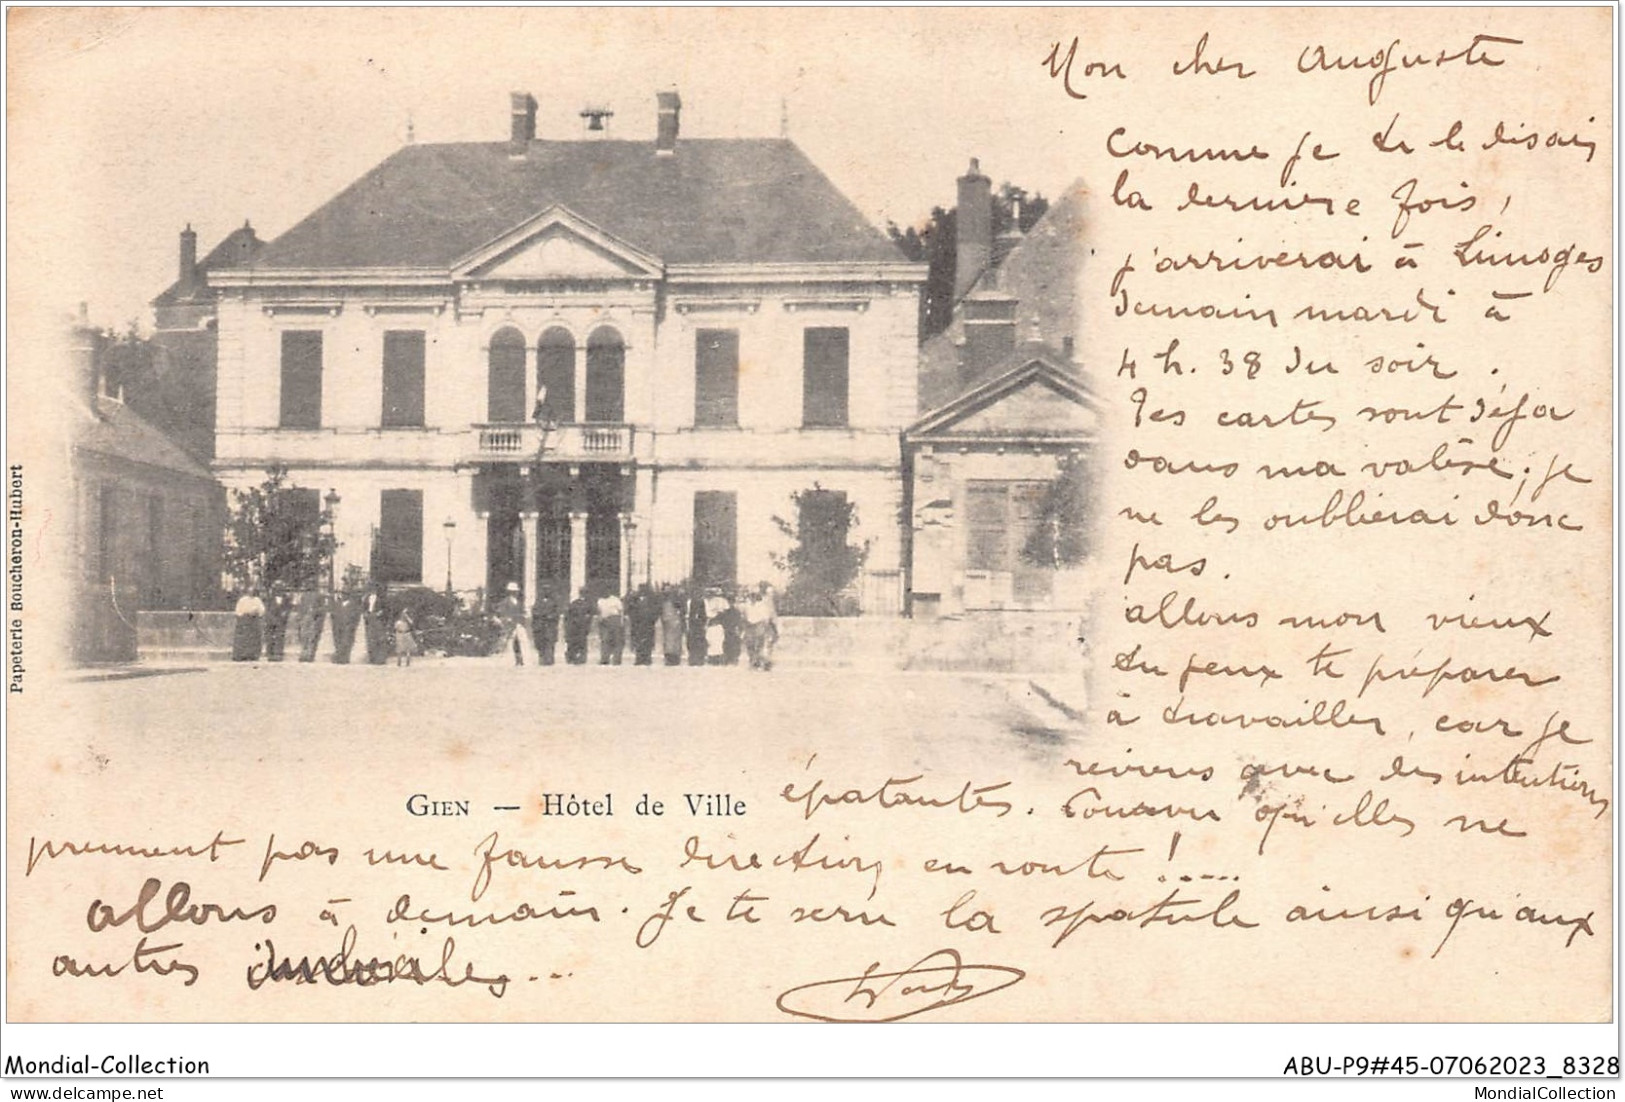 Mon cher Auguste
Comme je te le disais
la dernière fois,
j'arriverai à Limoges
demain mardi à
4 h. 38 du soir.
Tes cartes sont déjà
dans ma valise; je
ne les oublierai donc
pas.
allons mon vieux
tu peux te préparer
à travailler, car je
reviens avec des intentions
GIEN — Hôtel de Ville
épatantes. qu'elles ne
prennent pas une fausse direction en route !.....
allons à demain. Je te serre la spatule ainsi qu'aux
autres ...
Papeterie Boucheron-Hubert
Mondial-Collection
ABU-P9#45-07062023_8328
MondialCollection